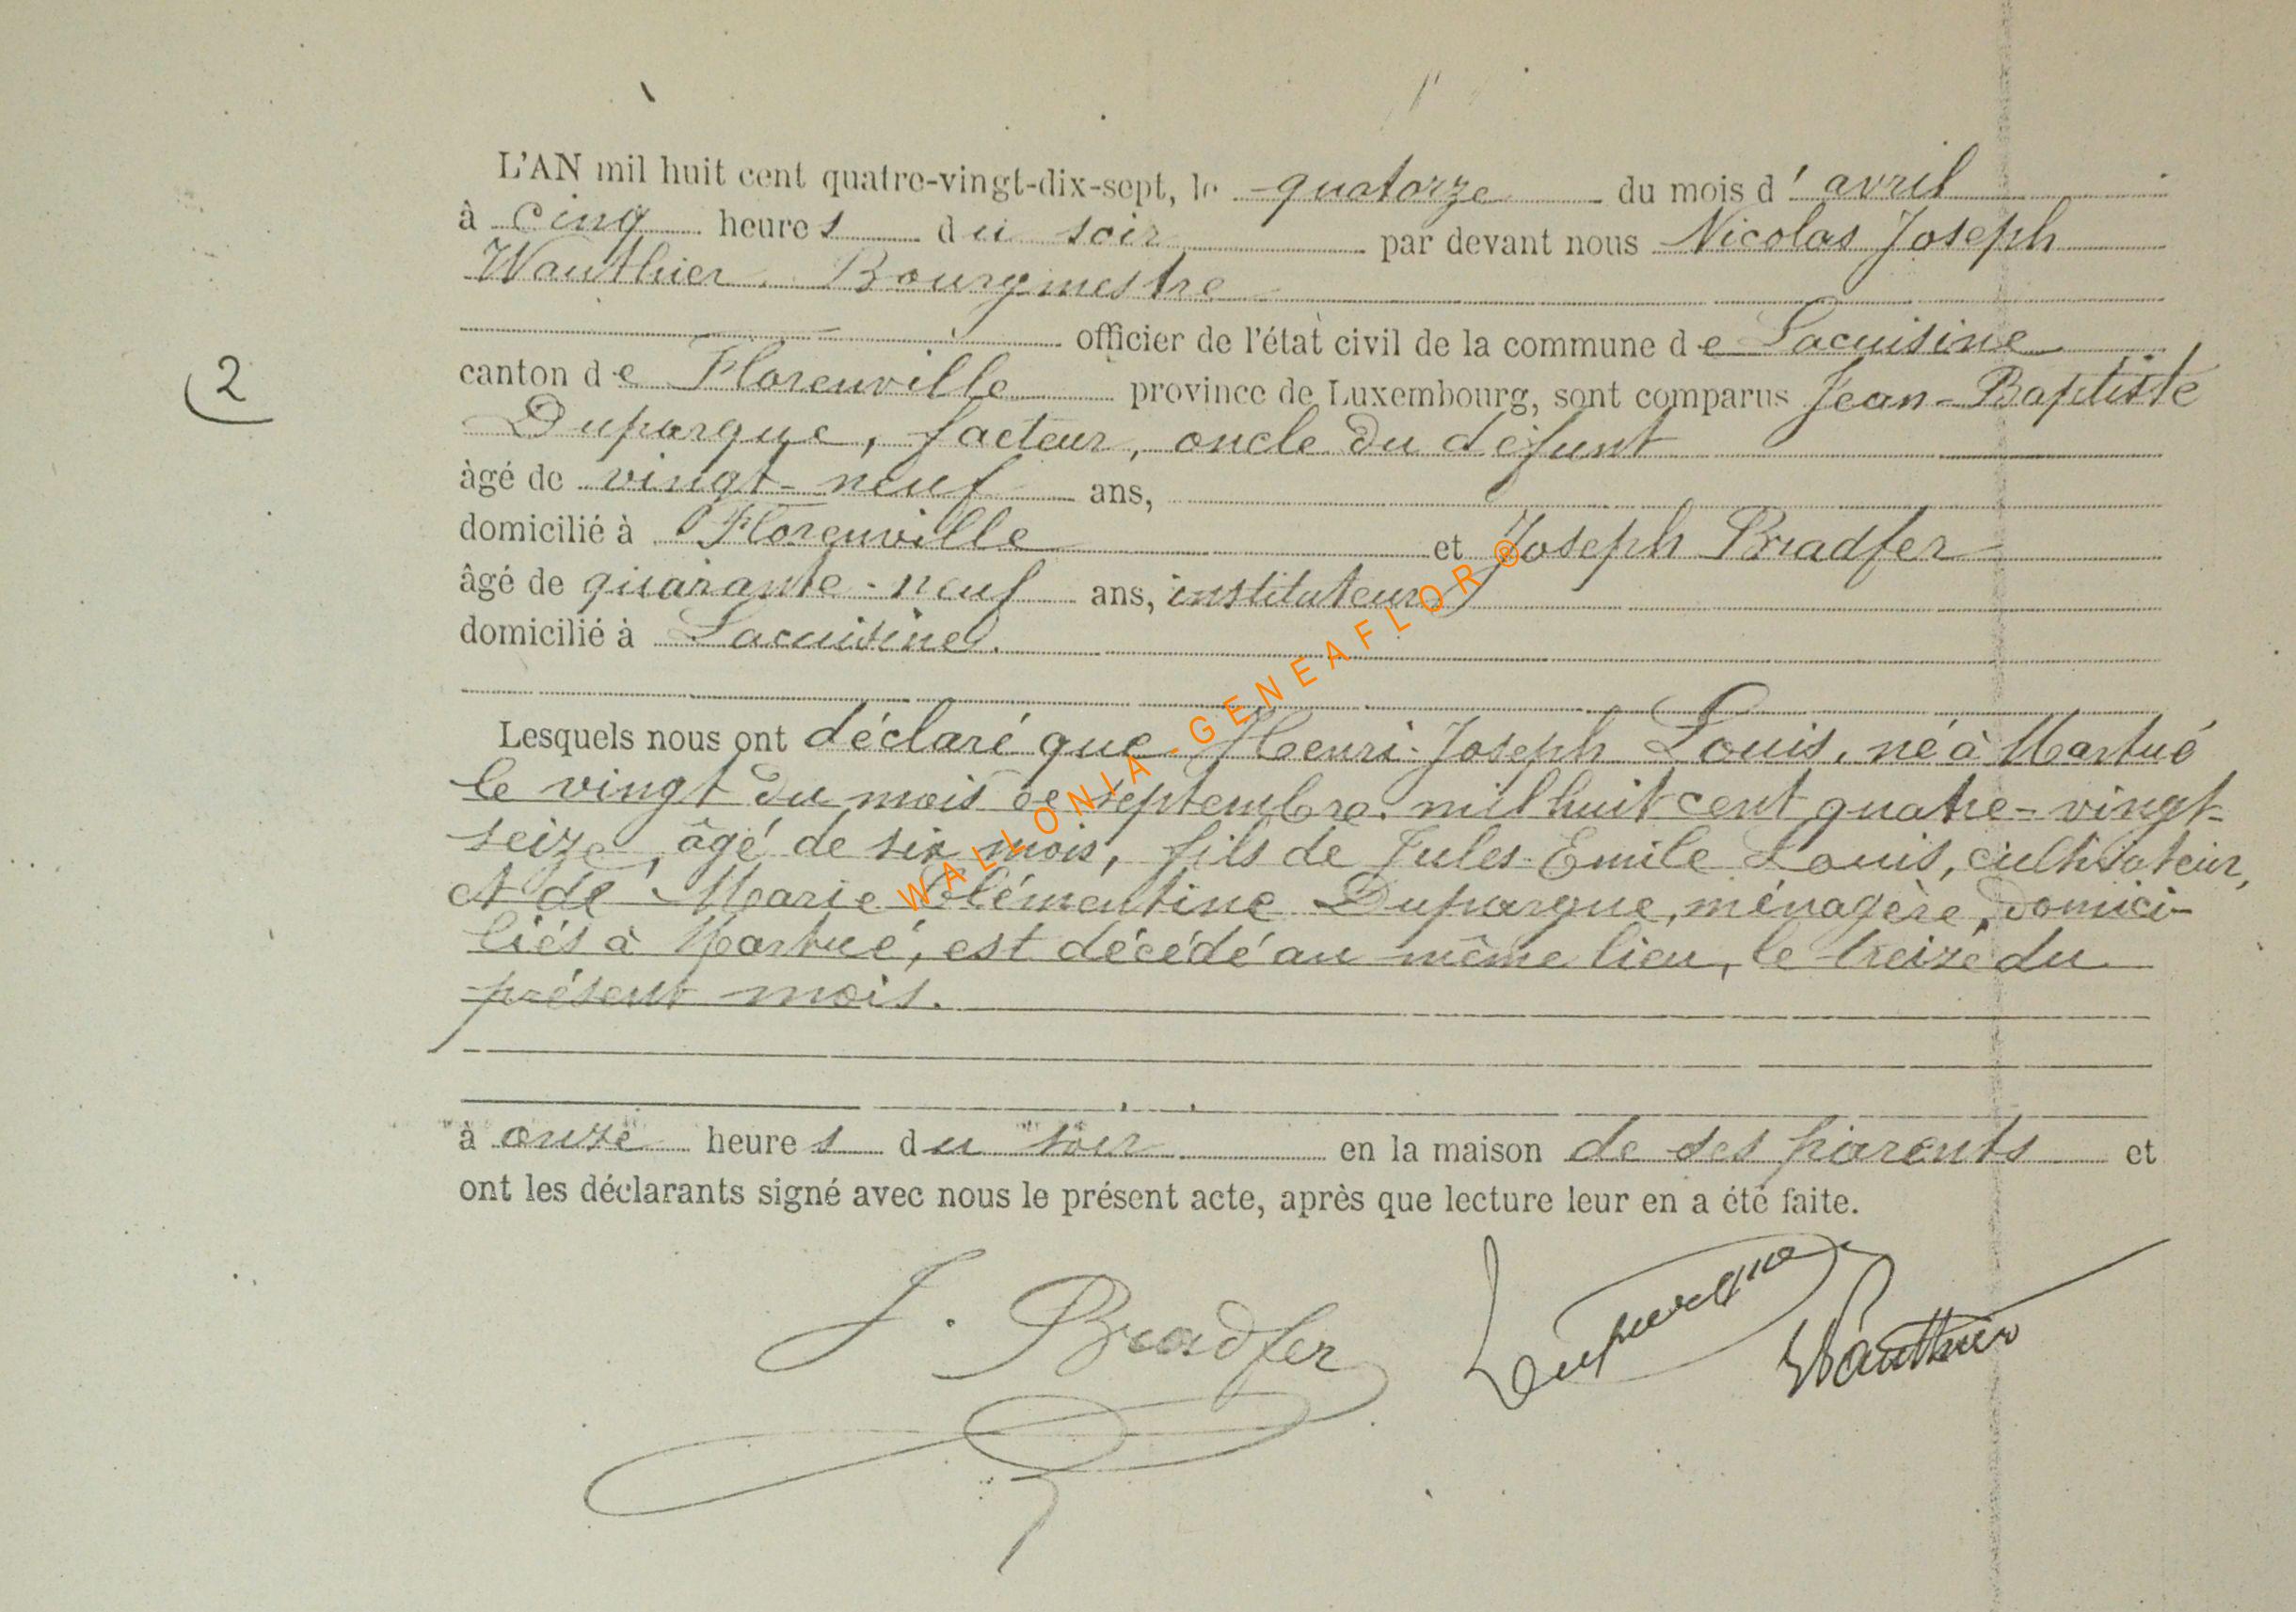 L'AN mil huit cent quatre-vingt-dix-sept, le quatorze du mois d'avril
à cinq heures du soir par devant nous Nicolas Joseph
Wauthier Bourgmestre
officier de l'état civil de la commune de Lacuisine
2
canton de Florenville province de Luxembourg, sont comparus Jean-Baptiste
Duparque, facteur, oncle du défunt
âgé de vingt-neuf ans,
domicilié à Florenville et Joseph Bradfer
âgé de quarante-neuf ans, instituteur
domicilié à Lacuisine.
Lesquels nous ont déclaré que Henri-Joseph Louis, né à Martué
le vingt du mois de septembre mil huit cent quatre-vingt-
seize, âgé de six mois, fils de Jules-Emile Louis, cultivateur,
et de Marie Clémentine Duparque, ménagère, domici-
liés à Martué, est décédé au même lieu, le treize du
présent mois.
à onze heures du soir en la maison de ses parents et
ont les déclarants signé avec nous le présent acte, après que lecture leur en a été faite.
J. Bradfer Duparque Wauthier
WALLONIA.GENEAFLOR®